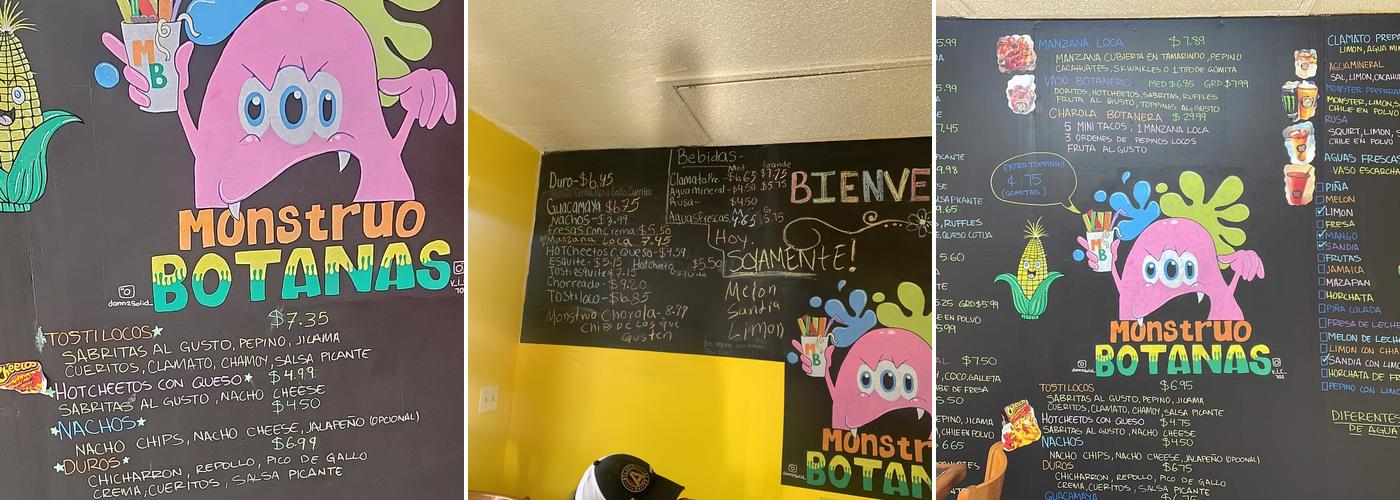 M
B
Monstruo
BOTANAS
damn2solid_
$7.35
TOSTILOCOS
SABRITAS AL GUSTO, PEPINO, JICAMA
CUERITOS, CLAMATO, CHAMOY, SALSA PICANTE
$4.99
HOTCHEETOS CON QUESO
SABRITAS AL GUSTO, NACHO CHEESE
$4.50
NACHOS
NACHO CHIPS, NACHO CHEESE, JALAPEÑO (OPCIONAL)
$6.99
DUROS
CHICHARRON, REPOLLO, PICO DE GALLO
CREMA, CUERITOS, SALSA PICANTE
Duro-$6.45
Guacamaya $6.75
Nachos-$3.99
Fresas Con Crema-$5.50
Manzana Loca 7.45
HOTCheetos C. queso-$4.59
Esquite-$5.15 Hotcheto esquite $5.50
Tostiesquite-$7.15
Chorreado-$9.20
Tostiloco-$6.85
Monstruo Charola-8.99
Chips De Los que
Gusten
Bebidas-
Med Grande
Clamato Pre.-$6.65 $7.75
Agua mineral-$4.50 $5.75
Rusa- $4.50
Aguas Frescas 4.65 5.75
BIENVE
Hoy.
SOLAMENTE!
Melon
Sandia
Limon
M
B
Monstr
BOTAN
MANZANA LOCA $7.89
MANZANA CUBIERTA EN TAMARINDO, PEPINO
CACAHUATES, SKWINKLES O 1 TIPO DE GOMITA
VASO BOTANERO MED $6.85 GRD $7.99
DORITOS, HOTCHEETOS, SABRITAS, RUFFLES
FRUTA AL GUSTO, TOPPINGS AL GUSTO
CHAROLA BOTANERA $29.99
5 MINI TACOS, 1 MANZANA LOCA
3 ORDENES DE PEPINOS LOCOS
FRUTA AL GUSTO
EXTRA TOPPING!!
$.75
(GOMITAS)
M
B
Monstruo
BOTANAS
TOSTILOCOS $6.95
SABRITAS AL GUSTO, PEPINO, JICAMA
CUERITOS, CLAMATO, CHAMOY, SALSA PICANTE
HOTCHEETOS CON QUESO $4.75
SABRITAS AL GUSTO, NACHO CHEESE
NACHOS $4.50
NACHO CHIPS, NACHO CHEESE, JALAPEÑO (OPCIONAL)
DUROS $6.75
CHICHARRON, REPOLLO, PICO DE GALLO
CREMA, CUERITOS, SALSA PICANTE
GUACAMAYA
CLAMATO PREPA
LIMON, AGUA MI
AGUAMINERAL
SAL, LIMON, CACAHU
MONSTER PREPARA
MONSTER, LIMON, S
CHILE EN POLVO
RUSA
SQUIRT, LIMON, S
CHILE EN POLVO
AGUAS FRESCA
VASO ESCARCHA
PIÑA
MELON
LIMON
FRESA
MANGO
SANDIA
FRUTAS
JAMAICA
MAZAPAN
HORCHATA
PIÑA COLADA
FRESA DE LECH
MELON DE LECH
LIMON CON CHI
SANDIA CON LIM
HORCHATA DE FR
PEPINO CON LIMO
DIFERENTES
DE AGUA